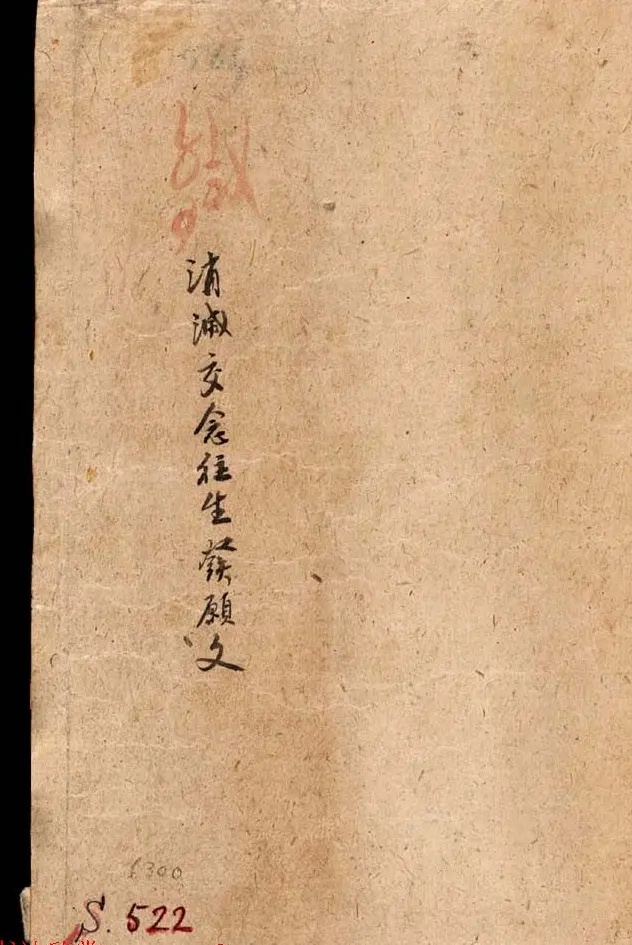 消滅交念往生發願文
6300
S. 522